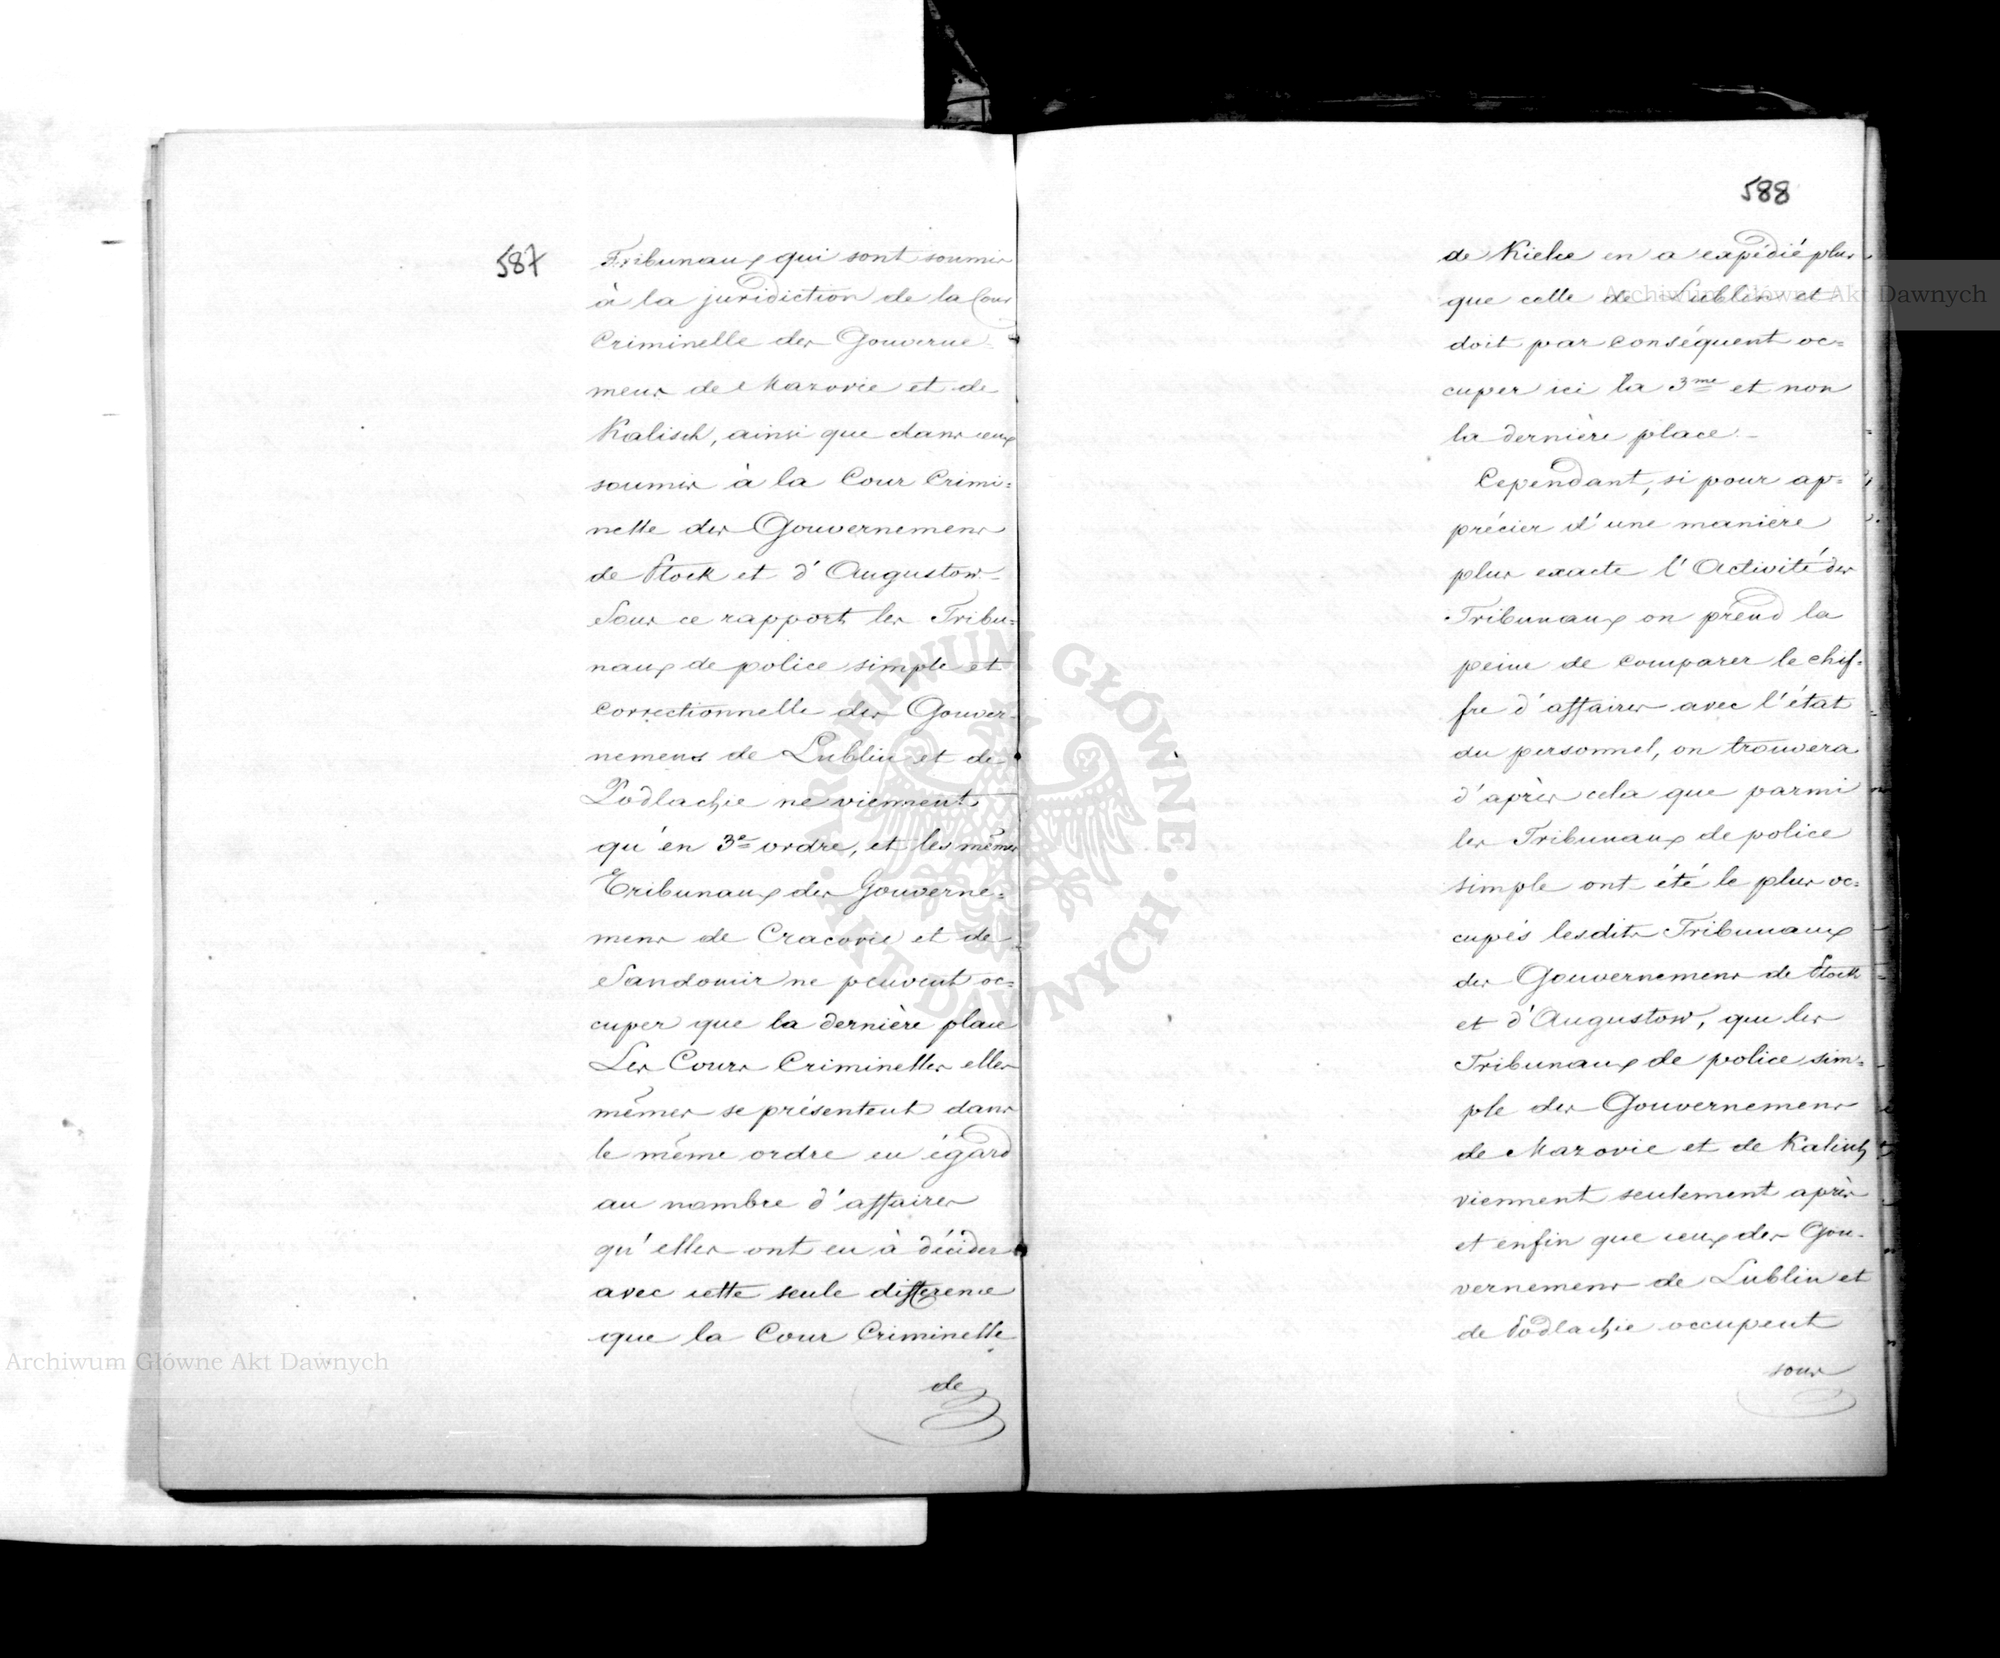 587
Tribunaux qui sont soumis
à la juridiction de la Cour
Criminelle des Gouverne-
mens de Mazovie et de
Kalisch, ainsi que dans ceux
soumis à la Cour Crimi=
nelle des Gouvernemens
de Plock et d'Augustow.-
Sous ce rapport les Tribu=
naux de police simple et
correctionnelle des Gouver-
nemens de Lublin et de
Podlachie ne viennent
qu'en 3e ordre, et les mêmes
Tribunaux des Gouverne=
mens de Cracovie et de
Sandomir ne peuvent oc=
cuper que la dernière place
Les Cours Criminelles elles
mêmes se présentent dans
le même ordre eu égard
au nombre d'affaires
qu'elles ont eu à décider
avec cette seule différence
que la Cour Criminelle
de
588
de Kielce en a expédié plus
que celle de Lublin et
doit par conséquent oc=
cuper ici la 3me et non
la dernière place.-
Cependant, si pour ap=
précier d'une manière
plus exacte l'Activité des
Tribunaux on prend la
peine de comparer le chif-
fre d'affaires avec l'état
du personnel, on trouvera
d'après cela que parmi
les Tribunaux de police
simple ont été le plus oc=
cupés lesdits Tribunaux
des Gouvernemens de Plock
et d'Augustow, que les
Tribunaux de police sim=
ple des Gouvernemens
de Mazovie et de Kalisch
viennent seulement après
et enfin que ceux des Gou-
vernemens de Lublin et
de Podlachie occupent
sous
Archiwum Główne Akt Dawnych
Archiwum Główne Akt Dawnych
ARCHIWUM GŁÓWNE AKT DAWNYCH